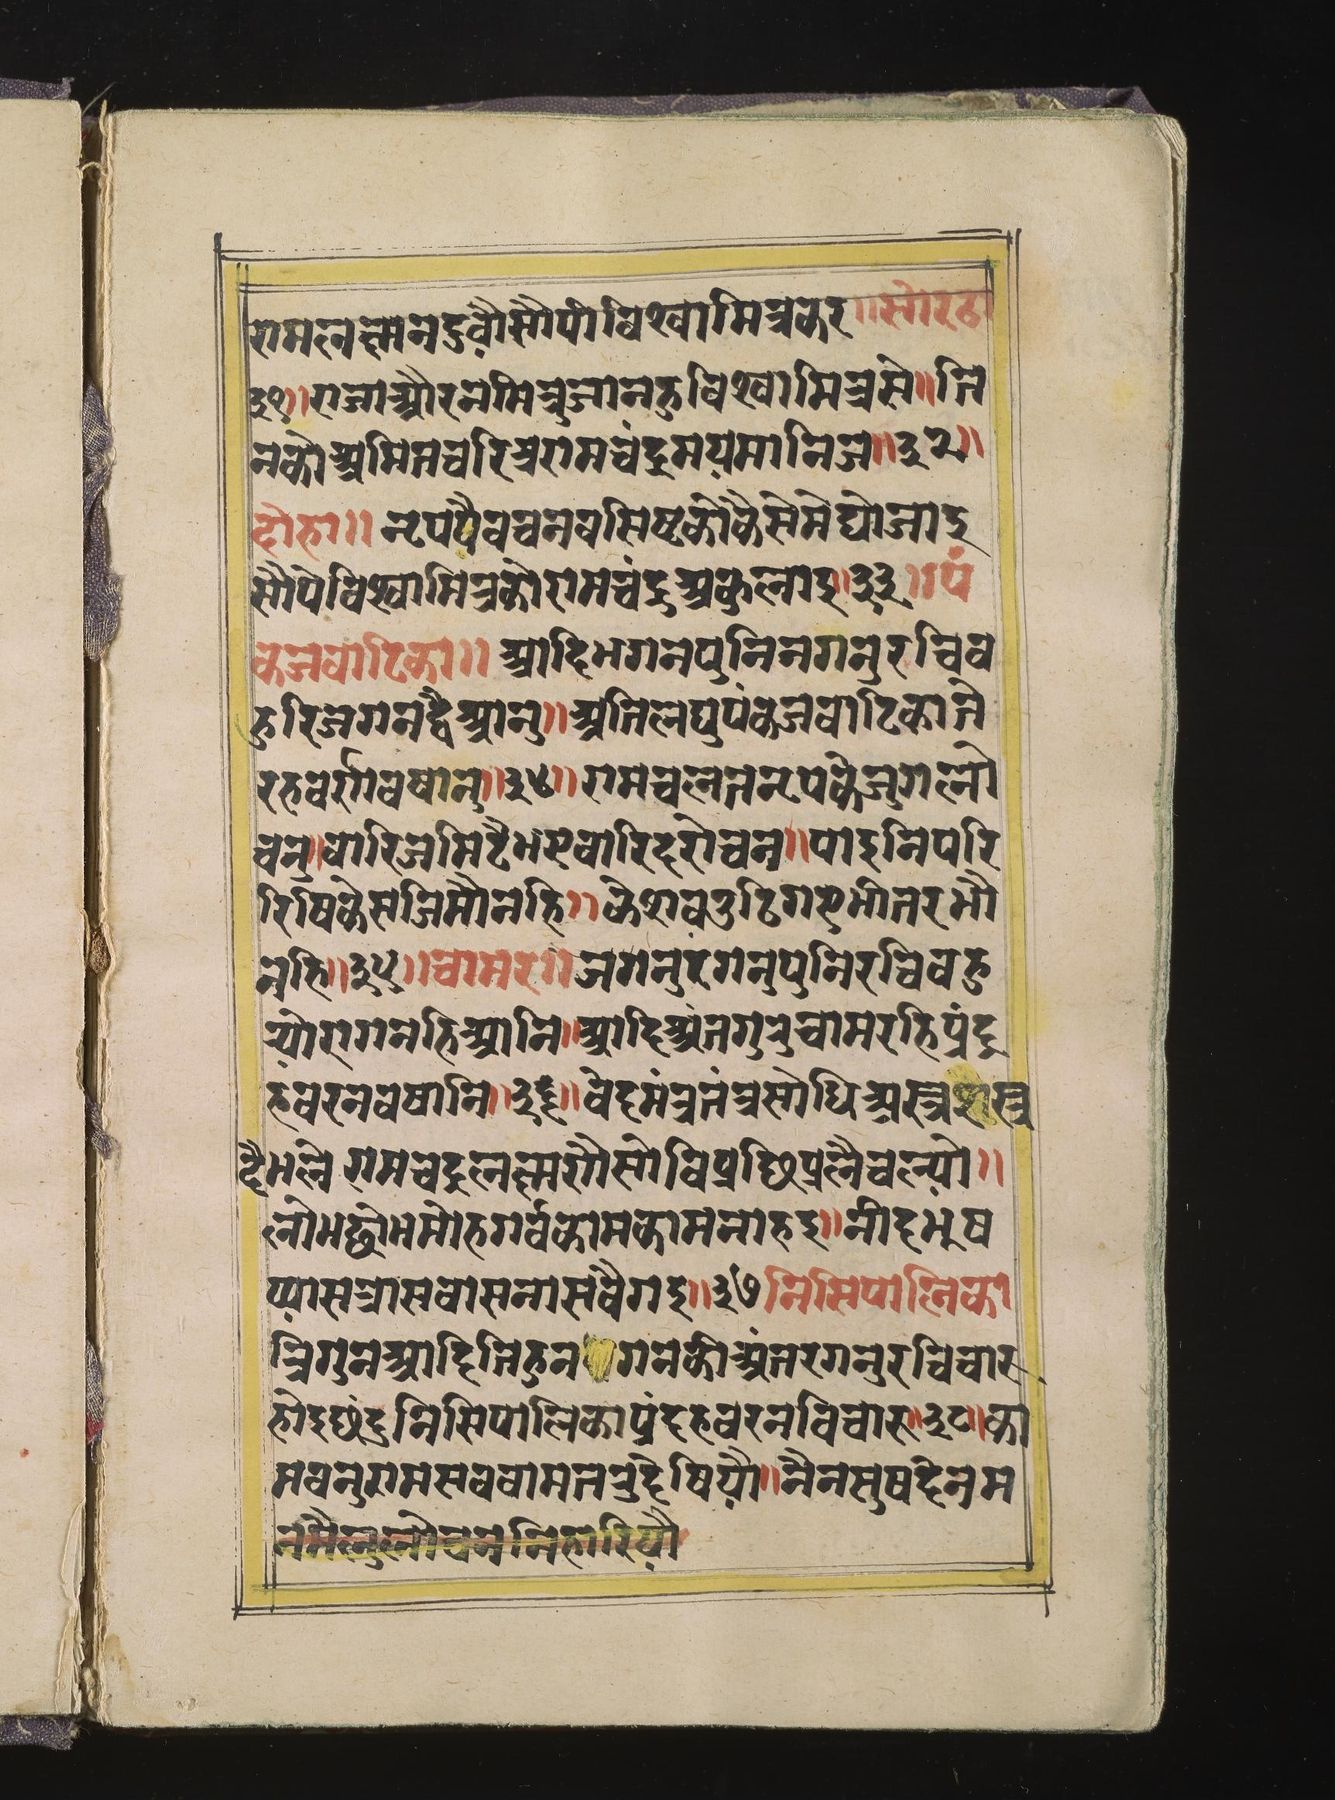 रामलछमनदुवौसौपौविश्वामित्रकर॥सोरठा
३१॥राजाऔरनमित्रुजानहुविश्वामित्रसे॥जि
नकोअमितचरित्ररामचंद्रमयमानिज॥३२॥
दोहा॥नृपपैवचनवसिष्टकोकैसेमेद्योजाइ
सौपेविश्वामित्रकोरामचंद्रअकुलाइ॥३३॥पं
कजवाटिका॥आदिभगनपुनिनगनुरचिव
हुरिजगनद्वैआनु॥अतिलघुपंकजवाटिकातै
रहवर्णवषानु॥३४॥रामचलतनृपकेजुगलो
चन॥वारिजमिटैभएवारिदरोचन॥पाइनिपरि
रिषिकेसजिमौनहि॥केशवउठिगएभीतरभौ
नहि॥३५॥चामर॥जगनुरगनुपुनिरचिवहु
योरागनहिआनि॥आदिअंतगुरुचामरहिपंद्र
हवरनवषानि॥३६॥वेदमंत्रतंत्रसोधिअस्त्रशस्त्र
दैभले रामचंद्रलछमणैसोविप्रछिप्रलैचल्यो॥
लोभछोभमोहगर्वकामकामनाहइ॥नीदभुष
प्याससत्रासवासनासवैगइ॥३७निसिपालिका
त्रिगुनआदिजितुन गनकीअंतरगनुरचिचार
होइछंदुनिसिपालिकापंद्रहवरनविचारु॥३८॥का
मवनुरामसववामतरुदेषियौ॥नैनसुषदेनम
नमैनुलोचननिहारियौ